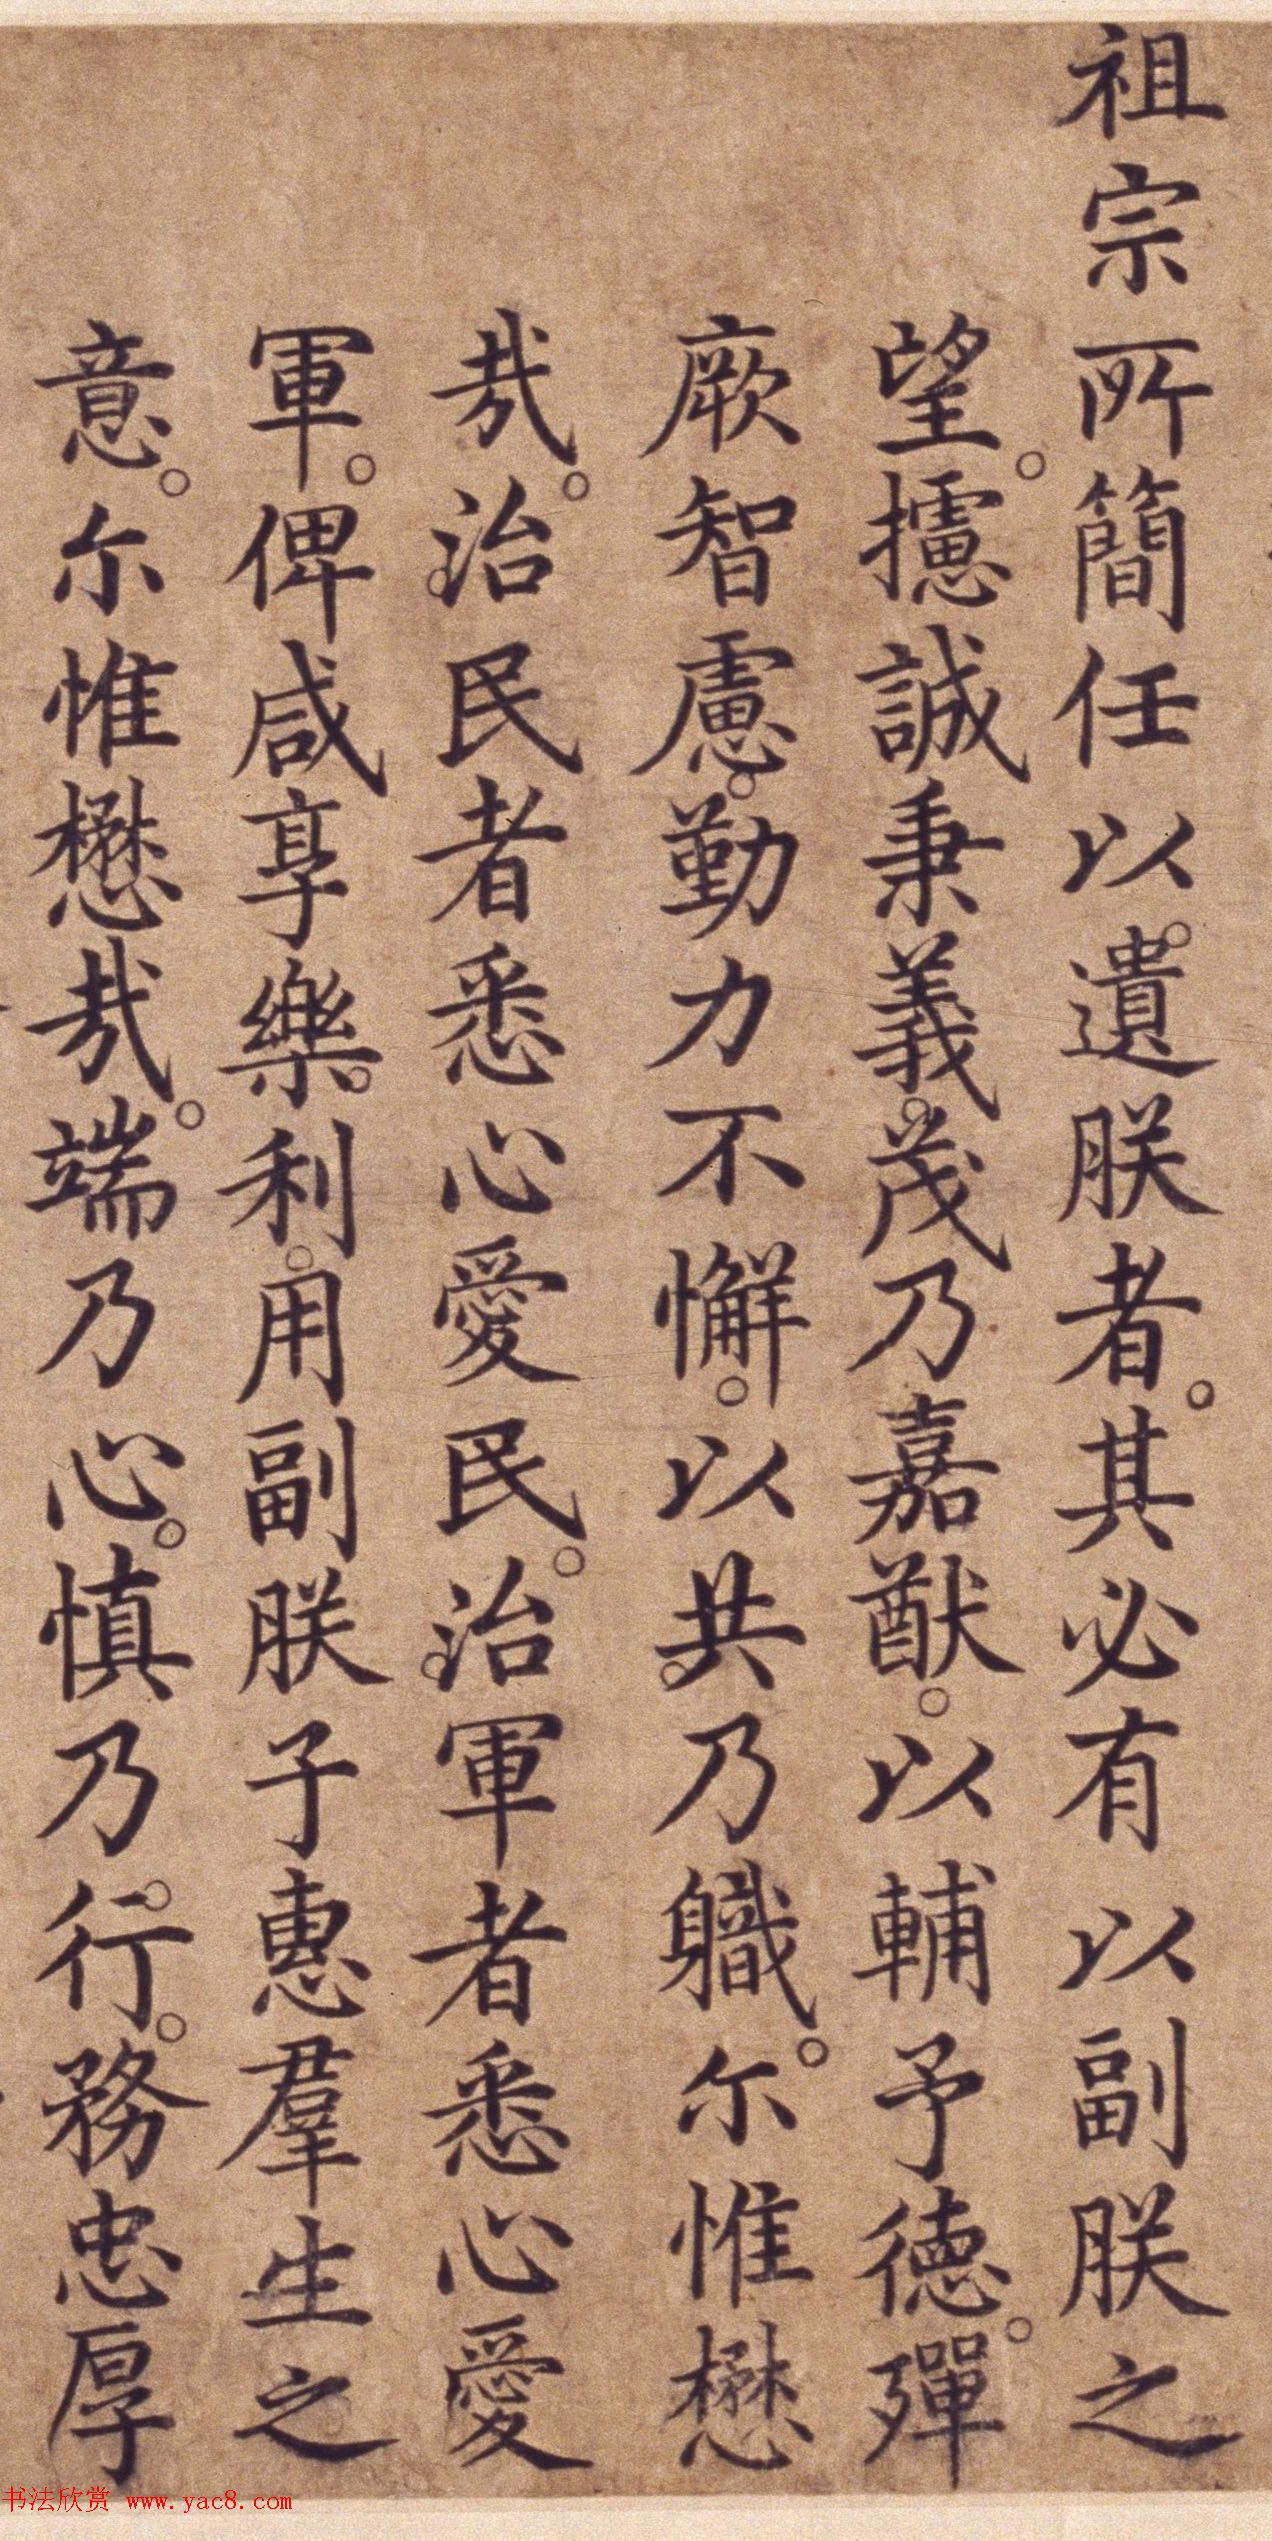 祖宗所簡任以遺朕者其必有以副朕之
望攄誠秉義茂乃嘉猷以輔予德殫
厥智慮勤力不懈以共乃職尔惟懋
哉治民者悉心愛民治軍者悉心愛
軍俾咸享樂利用副朕子惠羣生之
意尔惟懋哉端乃心慎乃行務忠厚
书法欣赏 www.yac8.com